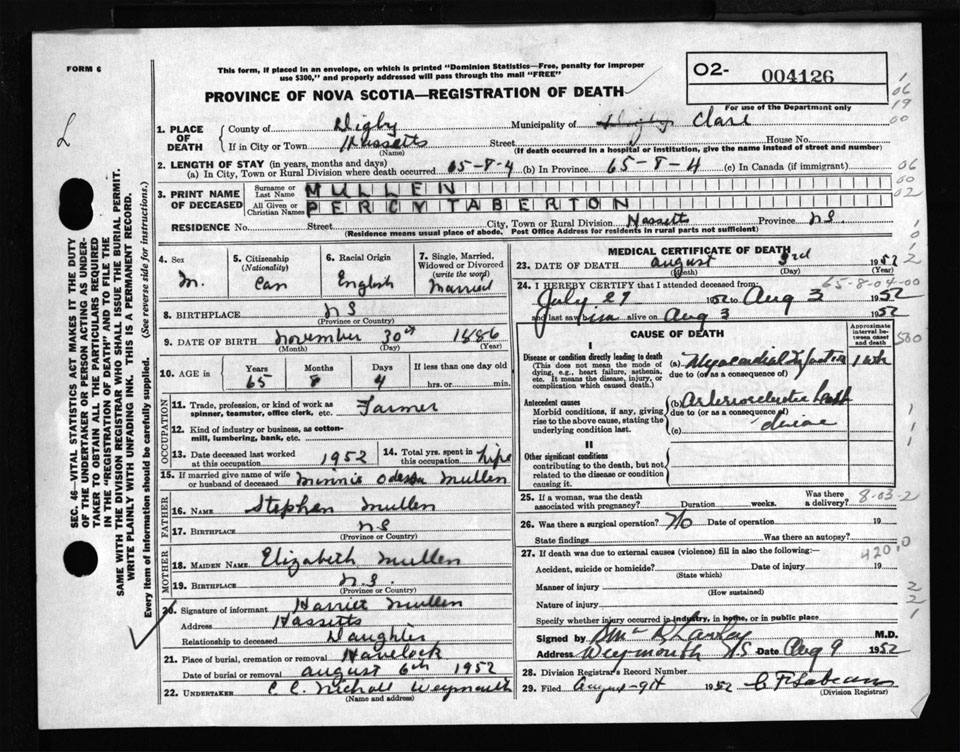 FORM 6
This form, if placed in an envelope, on which is printed "Dominion Statistics—Free, penalty for improper
use $300," and properly addressed will pass through the mail "FREE"
PROVINCE OF NOVA SCOTIA—REGISTRATION OF DEATH
O2- 004126
For use of the Department only
1. PLACE OF DEATH
County of Digby Municipality of Digby Clare
If in City or Town Hassetts Street House No.
(Name) (If death occurred in a hospital or institution, give the name instead of street and number)
2. LENGTH OF STAY (in years, months and days)
(a) In City, Town or Rural Division where death occurred 65-8-4 (b) In Province 65-8-4 (c) In Canada (if immigrant)
3. PRINT NAME OF DECEASED
Surname or Last Name MULLEN
All Given or Christian Names PERCY TABERTON
RESIDENCE No. Street City, Town or Rural Division Hassetts Province N.S.
(Residence means usual place of abode. Post Office Address for residents in rural parts not sufficient)
4. Sex M.
5. Citizenship (Nationality) Can
6. Racial Origin English
7. Single, Married, Widowed or Divorced (write the word) Married
8. BIRTHPLACE N S
(Province or Country)
9. DATE OF BIRTH November 30th 1886
(Month) (Day) (Year)
10. AGE in Years 65 Months 8 Days 4 If less than one day old
hrs. or min.
OCCUPATION
11. Trade, profession, or kind of work as
spinner, teamster, office clerk, etc. Farmer
12. Kind of industry or business, as cotton-
mill, lumbering, bank, etc.
13. Date deceased last worked
at this occupation 1952
14. Total yrs. spent in
this occupation life
15. If married give name of wife
or husband of deceased Minnie Odessa Mullen
FATHER
16. NAME Stephen Mullen
17. BIRTHPLACE N S
(Province or Country)
MOTHER
18. MAIDEN NAME Elizabeth Mullen
19. BIRTHPLACE N.S.
(Province or Country)
20. Signature of informant Harriet Mullen
Address Hassetts
Relationship to deceased Daughter
21. Place of burial, cremation or removal Havelock
Date of burial or removal August 6th 1952
22. UNDERTAKER C C Nichols Weymouth
(Name and address)
MEDICAL CERTIFICATE OF DEATH
23. DATE OF DEATH August 3rd 1952
(Month) (Day) (Year)
65-8-04-00
24. I HEREBY CERTIFY that I attended deceased from:
July 29 1952 to Aug 3 1952
and last saw him alive on Aug 3 1952
CAUSE OF DEATH
Approximate interval between onset and death
I
Disease or condition directly leading to death
(This does not mean the mode of dying, e.g., heart failure, asthenia, etc. It means the disease, injury, or complication which caused death.)
(a) Myocardial Infarction 1 wk
due to (or as a consequence of)
Antecedent causes
Morbid conditions, if any, giving rise to the above cause, stating the underlying condition last.
(b) Arteriosclerotic heart
due to (or as a consequence of)
(c) disease
II
Other significant conditions
contributing to the death, but not related to the disease or condition causing it.
25. If a woman, was the death
associated with pregnancy? Duration weeks. Was there a delivery?
8-03-2
26. Was there a surgical operation? No Date of operation 19
State findings Was there an autopsy?
27. If death was due to external causes (violence) fill in also the following:—
420.0
Accident, suicide or homicide? Date of injury 19
(State which)
Manner of injury
(How sustained)
Nature of injury
Specify whether injury occurred in industry, in home, or in public place
Signed by M.D.
Address Weymouth N.S Date Aug 9 1952
28. Division Registrar's Record Number
29. Filed August 9th 1952
(Division Registrar)
SEC. 46—VITAL STATISTICS ACT MAKES IT THE DUTY
OF THE UNDERTAKER OR PERSON ACTING AS UNDER-
TAKER TO OBTAIN ALL THE PARTICULARS REQUIRED
IN THE "REGISTRATION OF DEATH" AND TO FILE THE
SAME WITH THE DIVISION REGISTRAR WHO SHALL ISSUE THE BURIAL PERMIT.
WRITE PLAINLY WITH UNFADING INK. THIS IS A PERMANENT RECORD.
Every item of information should be carefully supplied. (See reverse side for instructions.)